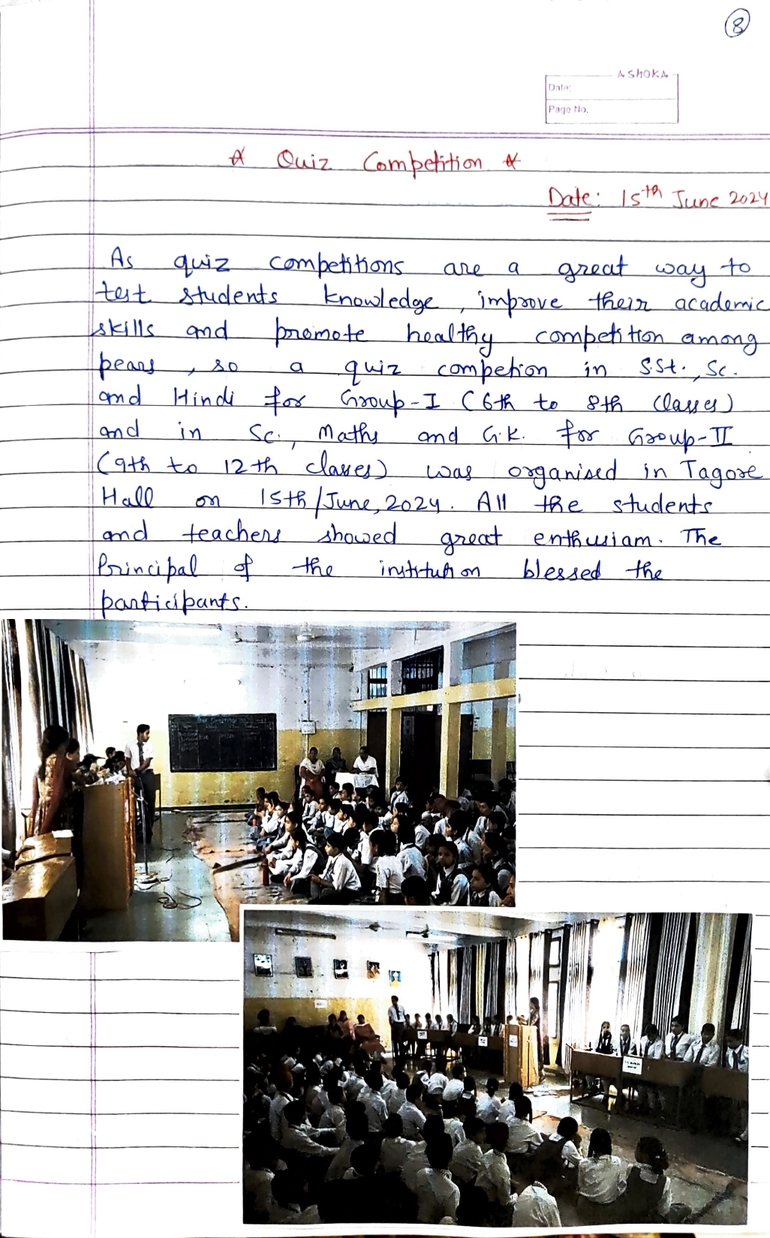 8
ASHOKA
Date:
Page No.
☆ Quiz Competition ☆
Date: 15th June 2024
As quiz competitions are a great way to
test students knowledge, improve their academic
skills and promote healthy competition among
pears, so a quiz competion in SSt., Sc.
and Hindi for Group-I (6th to 8th classes)
and in Sc., Maths and G.K. for Group-II
(9th to 12th classes) was organised in Tagore
Hall on 15th/June, 2024. All the students
and teachers showed great enthusiam. The
Principal of the institution blessed the
participants.